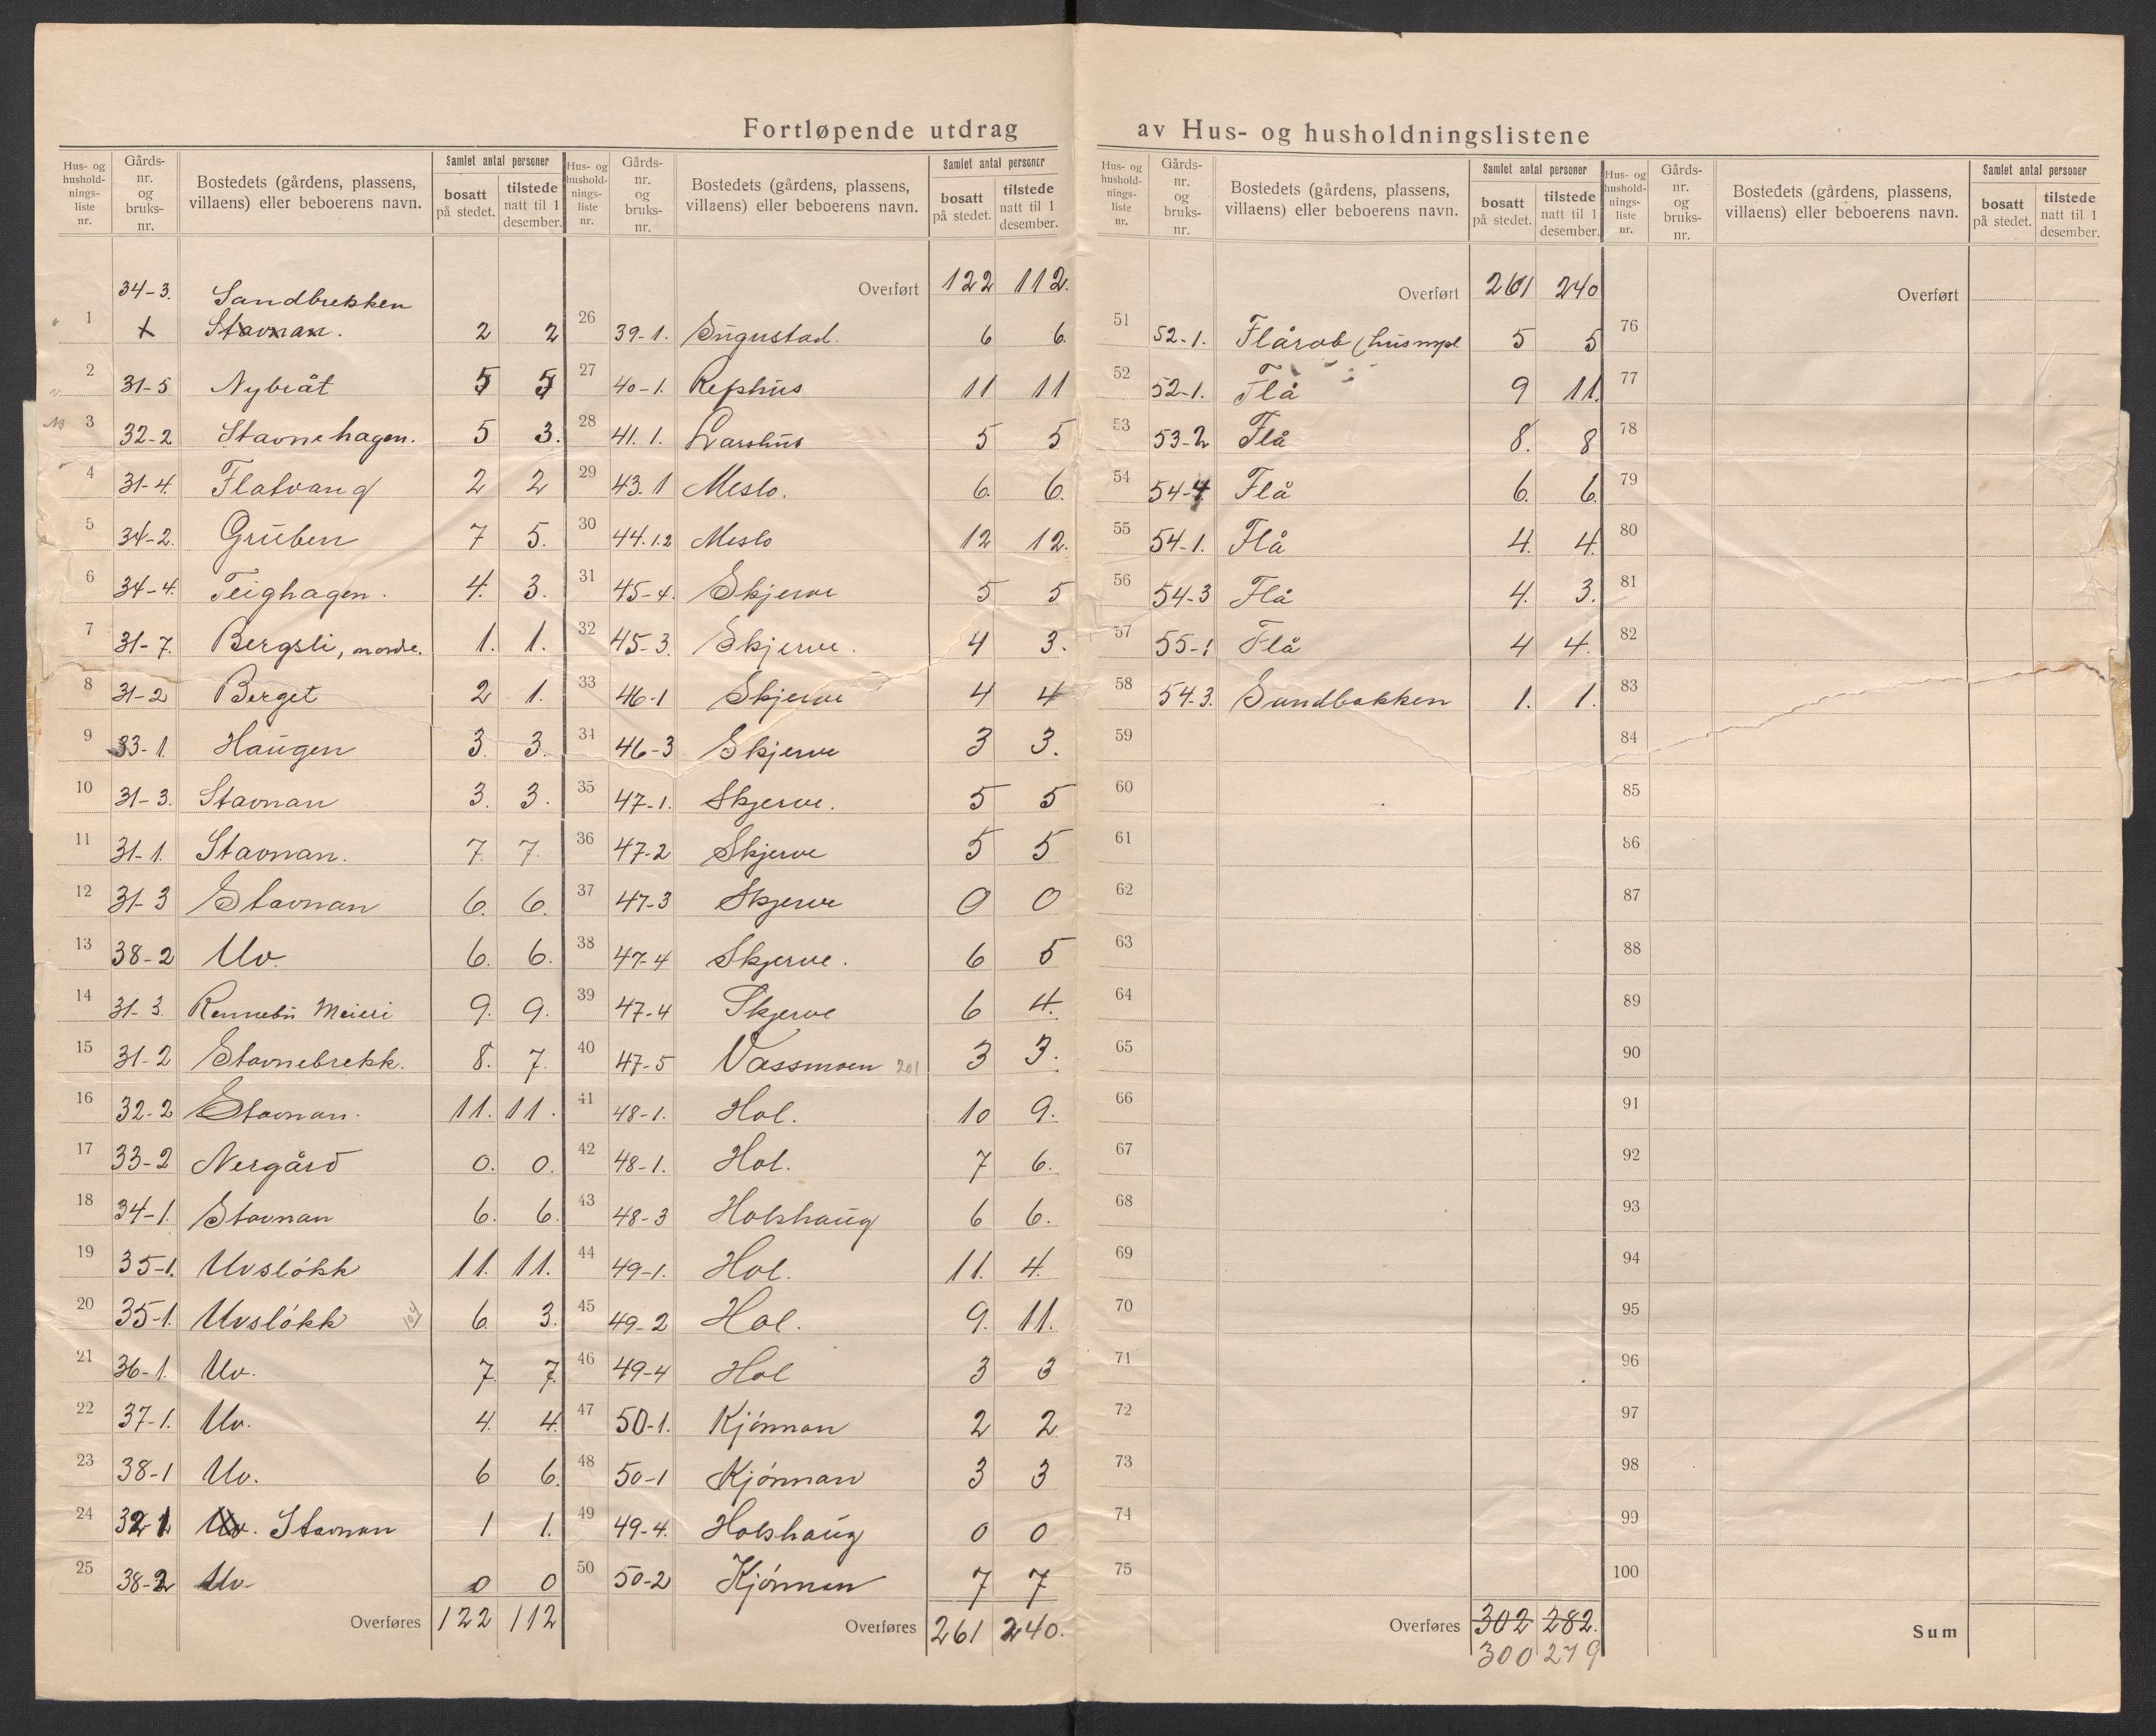 Fortløpende utdrag av Hus- og husholdningslistene
Hus- og husholdningsliste nr. | Gårdsnr. og bruksnr. | Bostedets (gårdens, plassens, villaens) eller beboerens navn. | Samlet antal personer bosatt på stedet. | tilstede natt til 1 desember.
34-3. Sandbrekken
1 + Stavnan. 2 2
2 31-5 Nybråt 5 5
3 32-2 Stavnehagen. 5 3.
4 31-4. Flatvang 2 2
5 34-2. Gruben 7 5.
6 34-4. Teighagen. 4. 3.
7 31-7. Bergsli, nordre. 1. 1.
8 31-2 Berget 2 1.
9 33-1 Haugen 3. 3.
10 31-3. Stavnan 3. 3.
11 31-1. Stavnan. 7. 7.
12 31-3 Stavnan 6. 6.
13 38-2 Uv. 6. 6.
14 31-3 Rennebu Meieri 9. 9.
15 31-2 Stavnebrekk. 8. 7.
16 32-2 Stavnan. 11. 11.
17 33-2 Nergård 0. 0.
18 34-1. Stavnan 6. 6.
19 35-1. Uvsløkk 11. 11.
20 35-1. Uvsløkk 6. 3.
21 36-1. Uv. 7. 7.
22 37-1. Uv. 4. 4.
23 38-1 Uv. 6 6.
24 32 1 Uv. Stavnan 1 1.
25 38-2 Uv. 0 0
Overføres 122 112
Hus- og husholdningsliste nr. | Gårdsnr. og bruksnr. | Bostedets (gårdens, plassens, villaens) eller beboerens navn. | Samlet antal personer bosatt på stedet. | tilstede natt til 1 desember.
Overført 122 112.
26 39-1. 6 6.
27 40-1. Rephus 11 11
28 41.1. Larshus 5 5
29 43.1 Meslo. 6. 6.
30 44.1.2 Meslo 12 12.
31 45-4. Skjerve 5 5
32 45-3. Skjerve. 4 3.
33 46-1 Skjerve 4 4
34 46-3 Skjerve 3 3.
35 47-1. Skjerve. 5 5
36 47-2 Skjerve 5 5
37 47-3 Skjerve 0 0
38 47-4 Skjerve. 6 5
39 47-4 Skjerve 6 4.
40 47-5 Vassmoen 201 3 3.
41 48-1. Hol. 10 9.
42 48-1. Hol. 7 6.
43 48-3 Holshaug 6 6.
44 49-1. Hol. 11. 4.
45 49-2 Hol. 9. 11.
46 49-4 Hol 3 3
47 50-1. Kjønnan 2 2
48 50-1 Kjønnan 3 3
49 49-4. Holshaug 0 0
50 50-2 Kjønnan 7 7
Overføres 261 240.
Hus- og husholdningsliste nr. | Gårdsnr. og bruksnr. | Bostedets (gårdens, plassens, villaens) eller beboerens navn. | Samlet antal personer bosatt på stedet. | tilstede natt til 1 desember.
Overført 261 240
51 52-1. (husmpl 5 5
52 52-1. Flå 9 11.
53 53-2 Flå 8. 8
54 54-4 Flå 6. 6.
55 54-1. Flå 4. 4.
56 54-3 Flå 4. 3.
57 55-1 Flå 4 4.
58 54.3. Sandbakken 1. 1.
59
60
61
62
63
64
65
66
67
68
69
70
71
72
73
74
75
Overføres 302 282.
300 279
Hus- og husholdningsliste nr. | Gårdsnr. og bruksnr. | Bostedets (gårdens, plassens, villaens) eller beboerens navn. | Samlet antal personer bosatt på stedet. | tilstede natt til 1 desember.
Overført
76
77
78
79
80
81
82
83
84
85
86
87
88
89
90
91
92
93
94
95
96
97
98
99
100
Sum